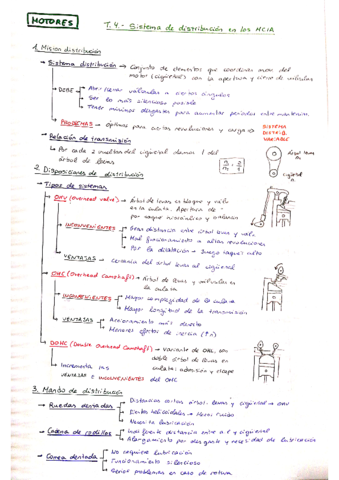 MOTORES
T.4.- Sistema de distribución en los MCIA
1. Mision distribución
→ Sistema distribución → Conjunto de elementos que coordinan mov. del
motor (cigüeñal) con la apertura y cierre de válvulas
→ DEBE → Abrir/cerrar válvulas a ciertos ángulos
→ Ser lo más silencioso posible
→ Tener mínimos desgastes para aumentar periodos entre mantenim.
→ PROBLEMAS → óptimas para ciertas revoluciones y carga → SISTEMA
DISTRIB.
VARIABLE
→ Relación de transmisión
→ Por cada 2 vueltas del cigüeñal damos 1 del
árbol de levas
árbol levas
cigüeñal
2. Disposiciones de distribución
→ Tipos de sistemas
→ OHV (overhead valve) → Árbol de levas en bloque y válv.
en la culata. Apertura de
por taques
→ INCONVENIENTES → Gran distancia entre árbol levas y valv.
→ Mal funcionamiento a altas revoluciones
→ Por la dilatación → Juego taqués alto
→ VENTAJAS → cercanía del árbol levas al cigüeñal
→ OHC (Overhead Camshaft) → Árbol de levas y válvulas en
la culata
→ INCONVENIENTES → Mayor complejidad de la culata
→ Mayor longitud de la transmisión
→ VENTAJAS → Accionamiento más directo
→ Menores efectos de inercia (↑n)
→ DOHC (Double Overhead Camshaft) → variante de OHC, con
doble árbol de levas en
culata: admisión y escape
→ Incrementa las
VENTAJAS e INCONVENIENTES del OHC
3. Mando de distribución
→ Ruedas dentadas → Distancias cortas árbol levas y cigüeñal → OHV
→ Dientes helicoidales → Menor ruido
→ Necesita lubricación
→ Cadena de rodillos → Indiferente distancia entre a.l y cigüeñal
→ Alargamiento por desgaste y necesidad de lubricación
→ Correa dentada → No requiere lubricación
→ Funcionamiento silencioso
→ Serios problemas en caso de rotura